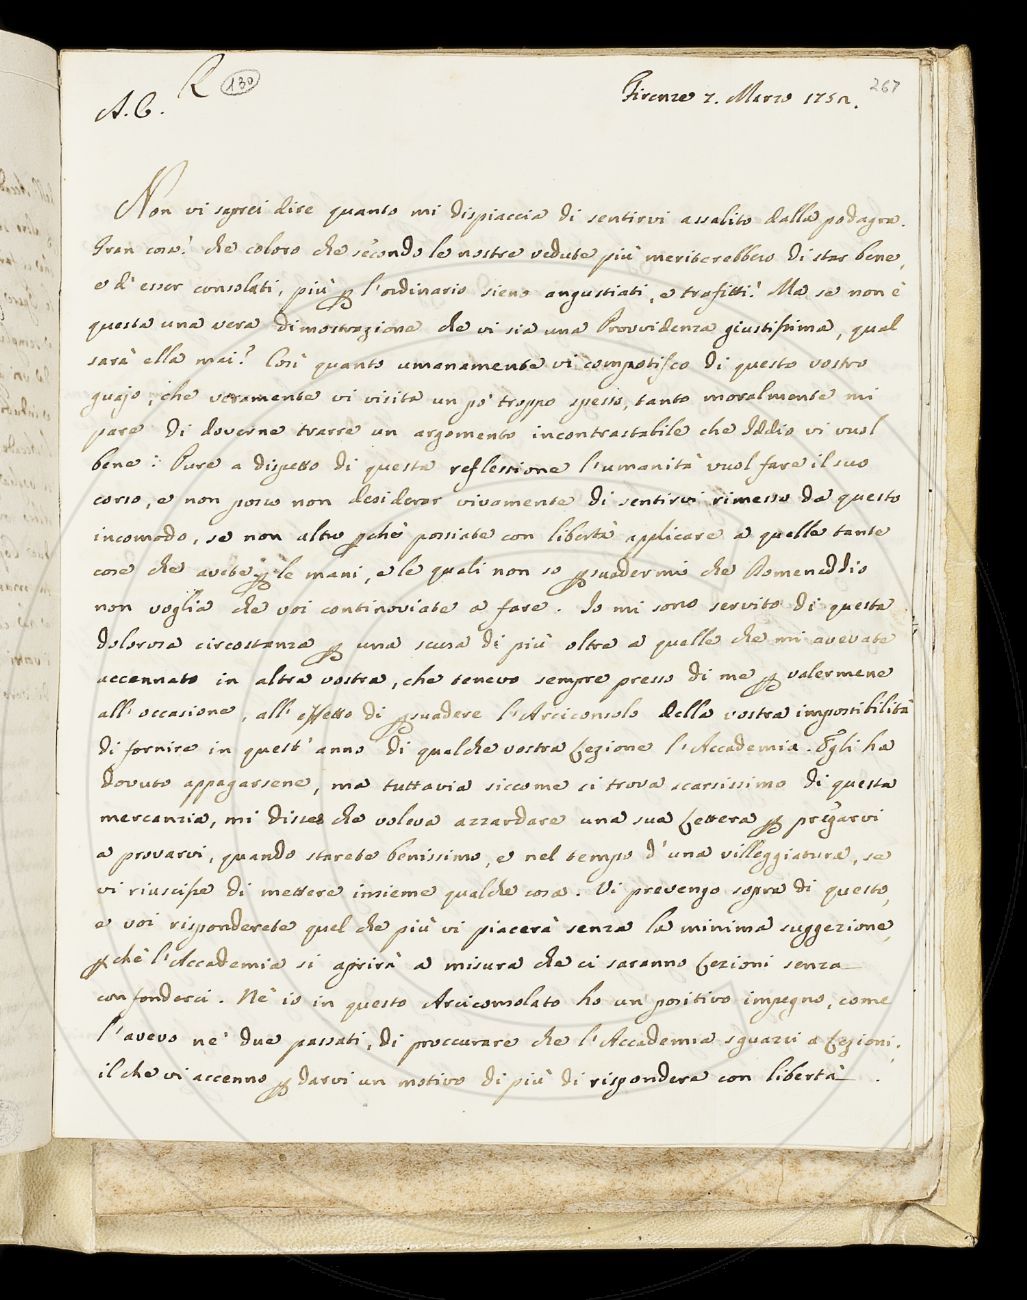 R 130
267
A. C.
Firenze 7. Marzo 1752.
Non vi saprei dire quanto mi dispiaccia di sentirvi assalito dalla podagra.
Gran cosa! che coloro che secondo le nostre vedute più meriterebbero di star bene,
e d'esser consolati, più p l'ordinario sieno angustiati, e trafitti! Ma se non è
questa una vera dimostrazione che vi sia una Provvidenza giustissima, qual
sarà ella mai? Così quanto umanamente vi compatisco di questo vostro
guajo, che veramente vi visita un pò troppo spesso, tanto moralmente mi
pare di doverne trarre un argomento incontrastabile che Iddio vi vuol
bene: Pure a dispetto di questa reflessione l'umanità vuol fare il suo
corso, e non posso non desiderar vivamente di sentirvi rimesso da questo
incomodo, se non altro pchè possiate con libertà applicare a quelle tante
cose che avete p le mani, e le quali non so psuadermi che Domeneddio
non voglia che voi continoviate a fare. Io mi sono servito di questa
dolorosa circostanza p una scusa di più oltre a quelle che mi avevate
accennato in altra vostra, che tenevo sempre presso di me p valermene
all'occasione, all'effetto di psuadere l'Arciconsolo della vostra impossibilità
di fornire in quest'anno di qualche vostra Lezione l'Accademia. Egli ha
dovuto appagarsene, ma tuttavia siccome ci trova scarsissimo di questa
mercanzia, mi disse che voleva azzardare una sua Lettera p pregarvi
a provarvi, quando starete benissimo, e nel tempo d'una villeggiatura, se
vi riuscisse di mettere insieme qualche cosa. Vi prevengo sopra di questo,
e voi risponderete quel che più vi piacerà senza la minima suggezione,
pchè l'Accademia si aprirà a misura che ci saranno Lezioni senza
confonderci. Nè io in questo Arciconsolato ho un positivo impegno, come
l'avevo ne' due passati, di proccurare che l'Accademia sguazzi a Lezioni;
il che vi accenno p darvi un motivo di più di rispondere con libertà.